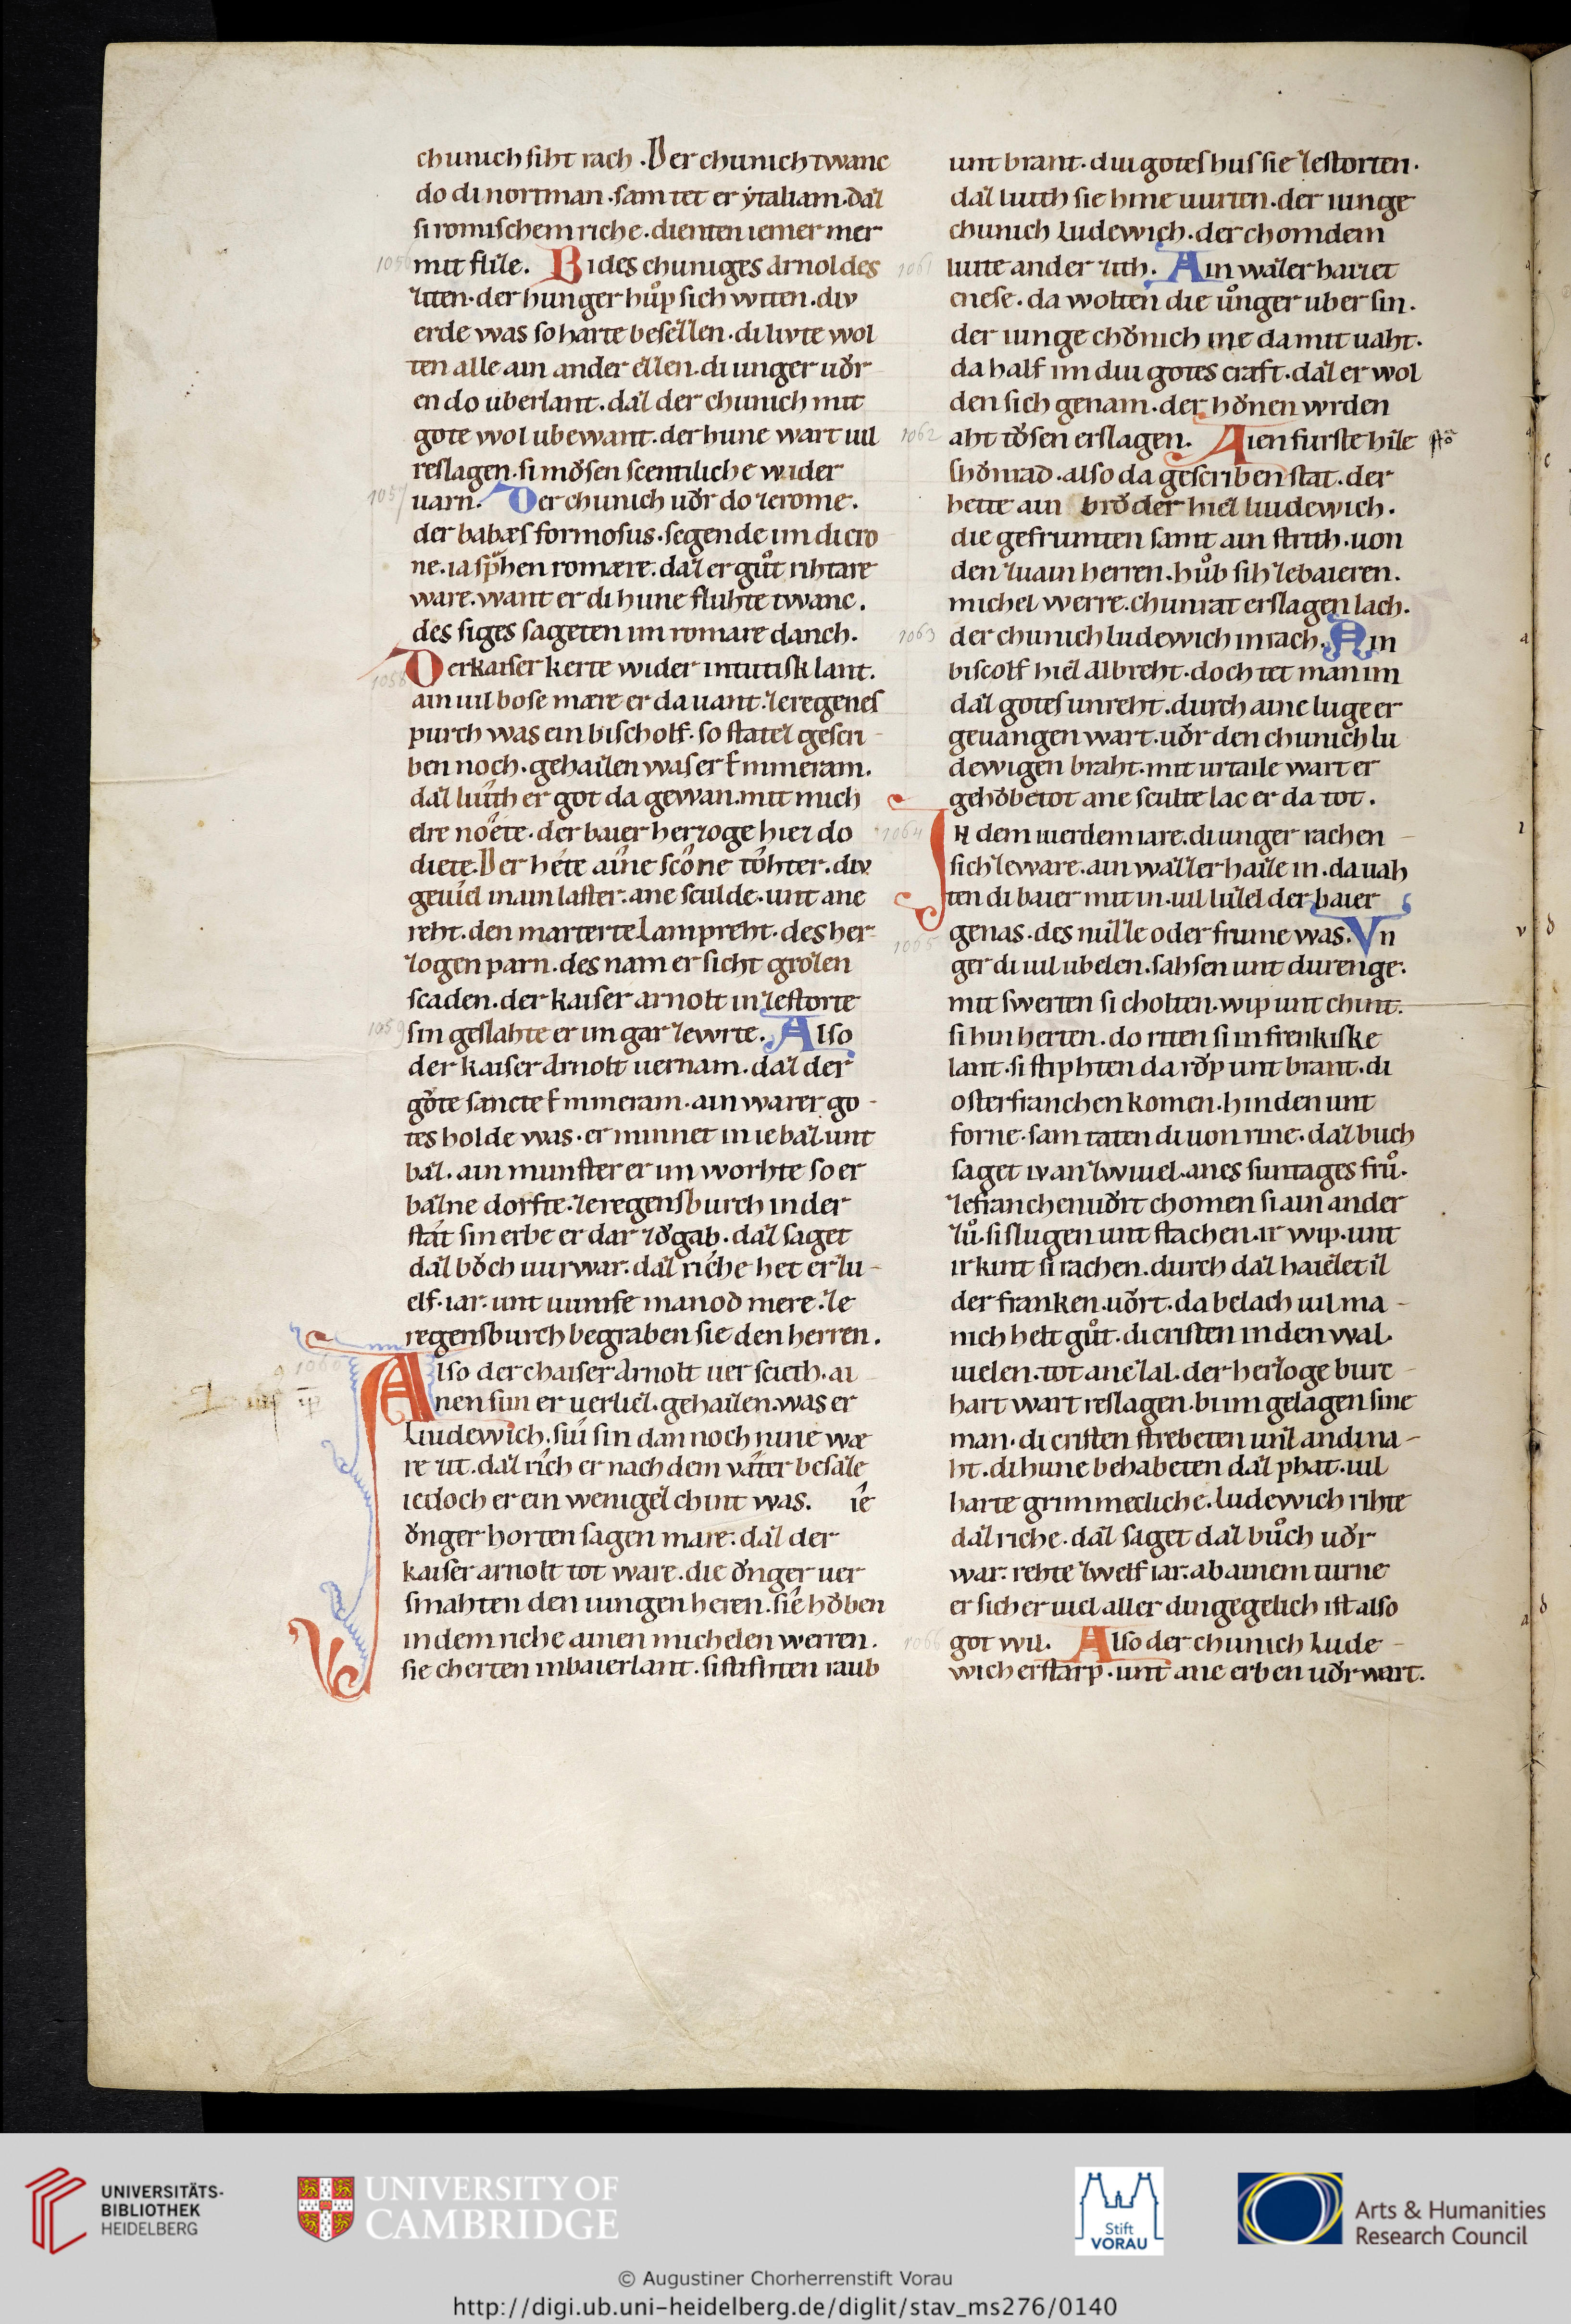 chunich siht rach . Der chunich twanc
do di nortman . sam tet er ẏtaliam . daz
si romischem riche . dienten iemer mer
1056 mit flize . Bi des chuniges arnoldes
ziten . der hunger hůp sich witen . div
erde was so harte besezzen . di livte wol
ten alle ain ander ezzen . di unger uǒr
en do uberlant . daz der chunich mit
gote wol ubewant . der hune wart uil
reslagen . si mǒsen scentiliche wider
1057 uarn . Der chunich uǒr do ze rome .
der babæs formosus . segende im di cro
ne . ia sp̃hen romære . daz er gůt rihtare
ware . want er di hune fluhte twanc .
des siges sageten im romare danch .
1058 Der kaiser kerte wider in tutisk lant .
ain uil bose mære er da uant . ze regenes
purch was ein bischolf . so statez gescri
ben noch . gehaizen was er Emmeram .
daz luith er got da gewan . mit mich
elre noete . der baier herzoge hiez do
diete . Der hete aine scone tohter . div
geuiel in ain laster . ane sculde . unt ane
reht . den marterte Lampreht . des her
zogen parn . des nam er sicht grozen
scaden . der kaiser arnolt in zestorte
1059 sin geslahte er im gar zewrte . Also
der kaiser Arnolt uernam . daz der
gǒte sancte Emmeram . ain warer go
tes holde was . er minnet in ie baz . unt
baz . ain munster er im worhte so er
bazne dorfte . ze regensburch in der
stat sin erbe er dar zǒ gab . daz saget
daz bǒch uurwar . daz riche het er zu
elf . iar . unt uumfe manod mere . ze
regensburch begraben sie den herren .
1060 Also der chaiser Arnolt uer scieth . ai
nen sun er uerliez . gehaizen . was er
Liudewich . siu sin dannoch nine wæ
re zit . daz rich er nach dem vater besaze
iedoch er ein wenigez chint was . ie
ǒnger horten sagen mare . daz der
kaiser arnolt tot ware . die ǒnger uer
smahten den iungen heren . sie hǒben
in dem riche ainen michelen werren .
sie cherten in baierlant . si stifhten raub
unt brant . diu gotes hus sie zestorten .
daz liuth sie hine uurten . der iunge
chunich Ludewich . der chom dem
1061 liute ander zith . Ain wazer haizet
enese . da wolten die ůnger uber sin .
der iunge chǒnich ine da mit uaht .
da half im diu gotes craft . daz er wol
den sich genam . der hǒnen wrden
1062 aht tǒsen erslagen . Aien furste hize
shǒnrad . also da gescriben stat . der
hette ain brǒder hiez liudewich .
die gefrumten samt ain strith . uon
den zuain herren . hůb sih ze baieren .
michel werre . chunrat erslagen lach .
1063 der chunich ludewich in rach . Ain
biscolf hiez Albreht . doch tet man im
daz gotes unreht . durch aine luge er
geuangen wart . uǒr den chunich lu
dewigen braht . mit urtaile wart er
gehǒbetot ane sculte lac er da tot .
1064 IN dem uierdem iare . di unger rachen
sich zeware . ain wazzer haize in . da uah
ten di baier mit in . uil luzel der baier
1065 genas . des nuzze oder frume was . Vn
ger di uil ubelen . sahsen unt durenge .
mit swerten si cholten . wip unt chint .
si hin herten . do riten si in frenkiske
lant . si stiphten da rǒp unt brant . di
osterfranchen komen . hinden unt
forne . sam taten di uon rine . daz buch
saget iv an zwiuel . anes suntages frů .
ze franchenuǒrt chomen si ain ander
zů . si slugen unt stachen . ir wip . unt
ir kint si rachen . durch daz haizlet iz
der franken . uǒrt . da belach uil ma
nich helt gůt . di cristen in den wal
uielen . tot ane zal . der herzoge burc
hart wart reslagen . bi im gelagen sine
man . di cristen strebeten unz an di na
ht . di hune behabeten daz phat . uil
harte grimmecliche . Ludewich rihte
daz riche . daz saget daz bůch uǒr
war . rehte zwelf iar . ab ainem turne
er sich er uiel aller dingegelich ist also
1066 got wil . Also der chunich Lude
wich erstarp . unt ane erben uǒrwart .
UNIVERSITÄTS-
BIBLIOTHEK
HEIDELBERG
UNIVERSITY OF
CAMBRIDGE
Stift
VORAU
Arts & Humanities
Research Council
© Augustiner Chorherrenstift Vorau
http://digi.ub.uni-heidelberg.de/diglit/stav_ms276/0140